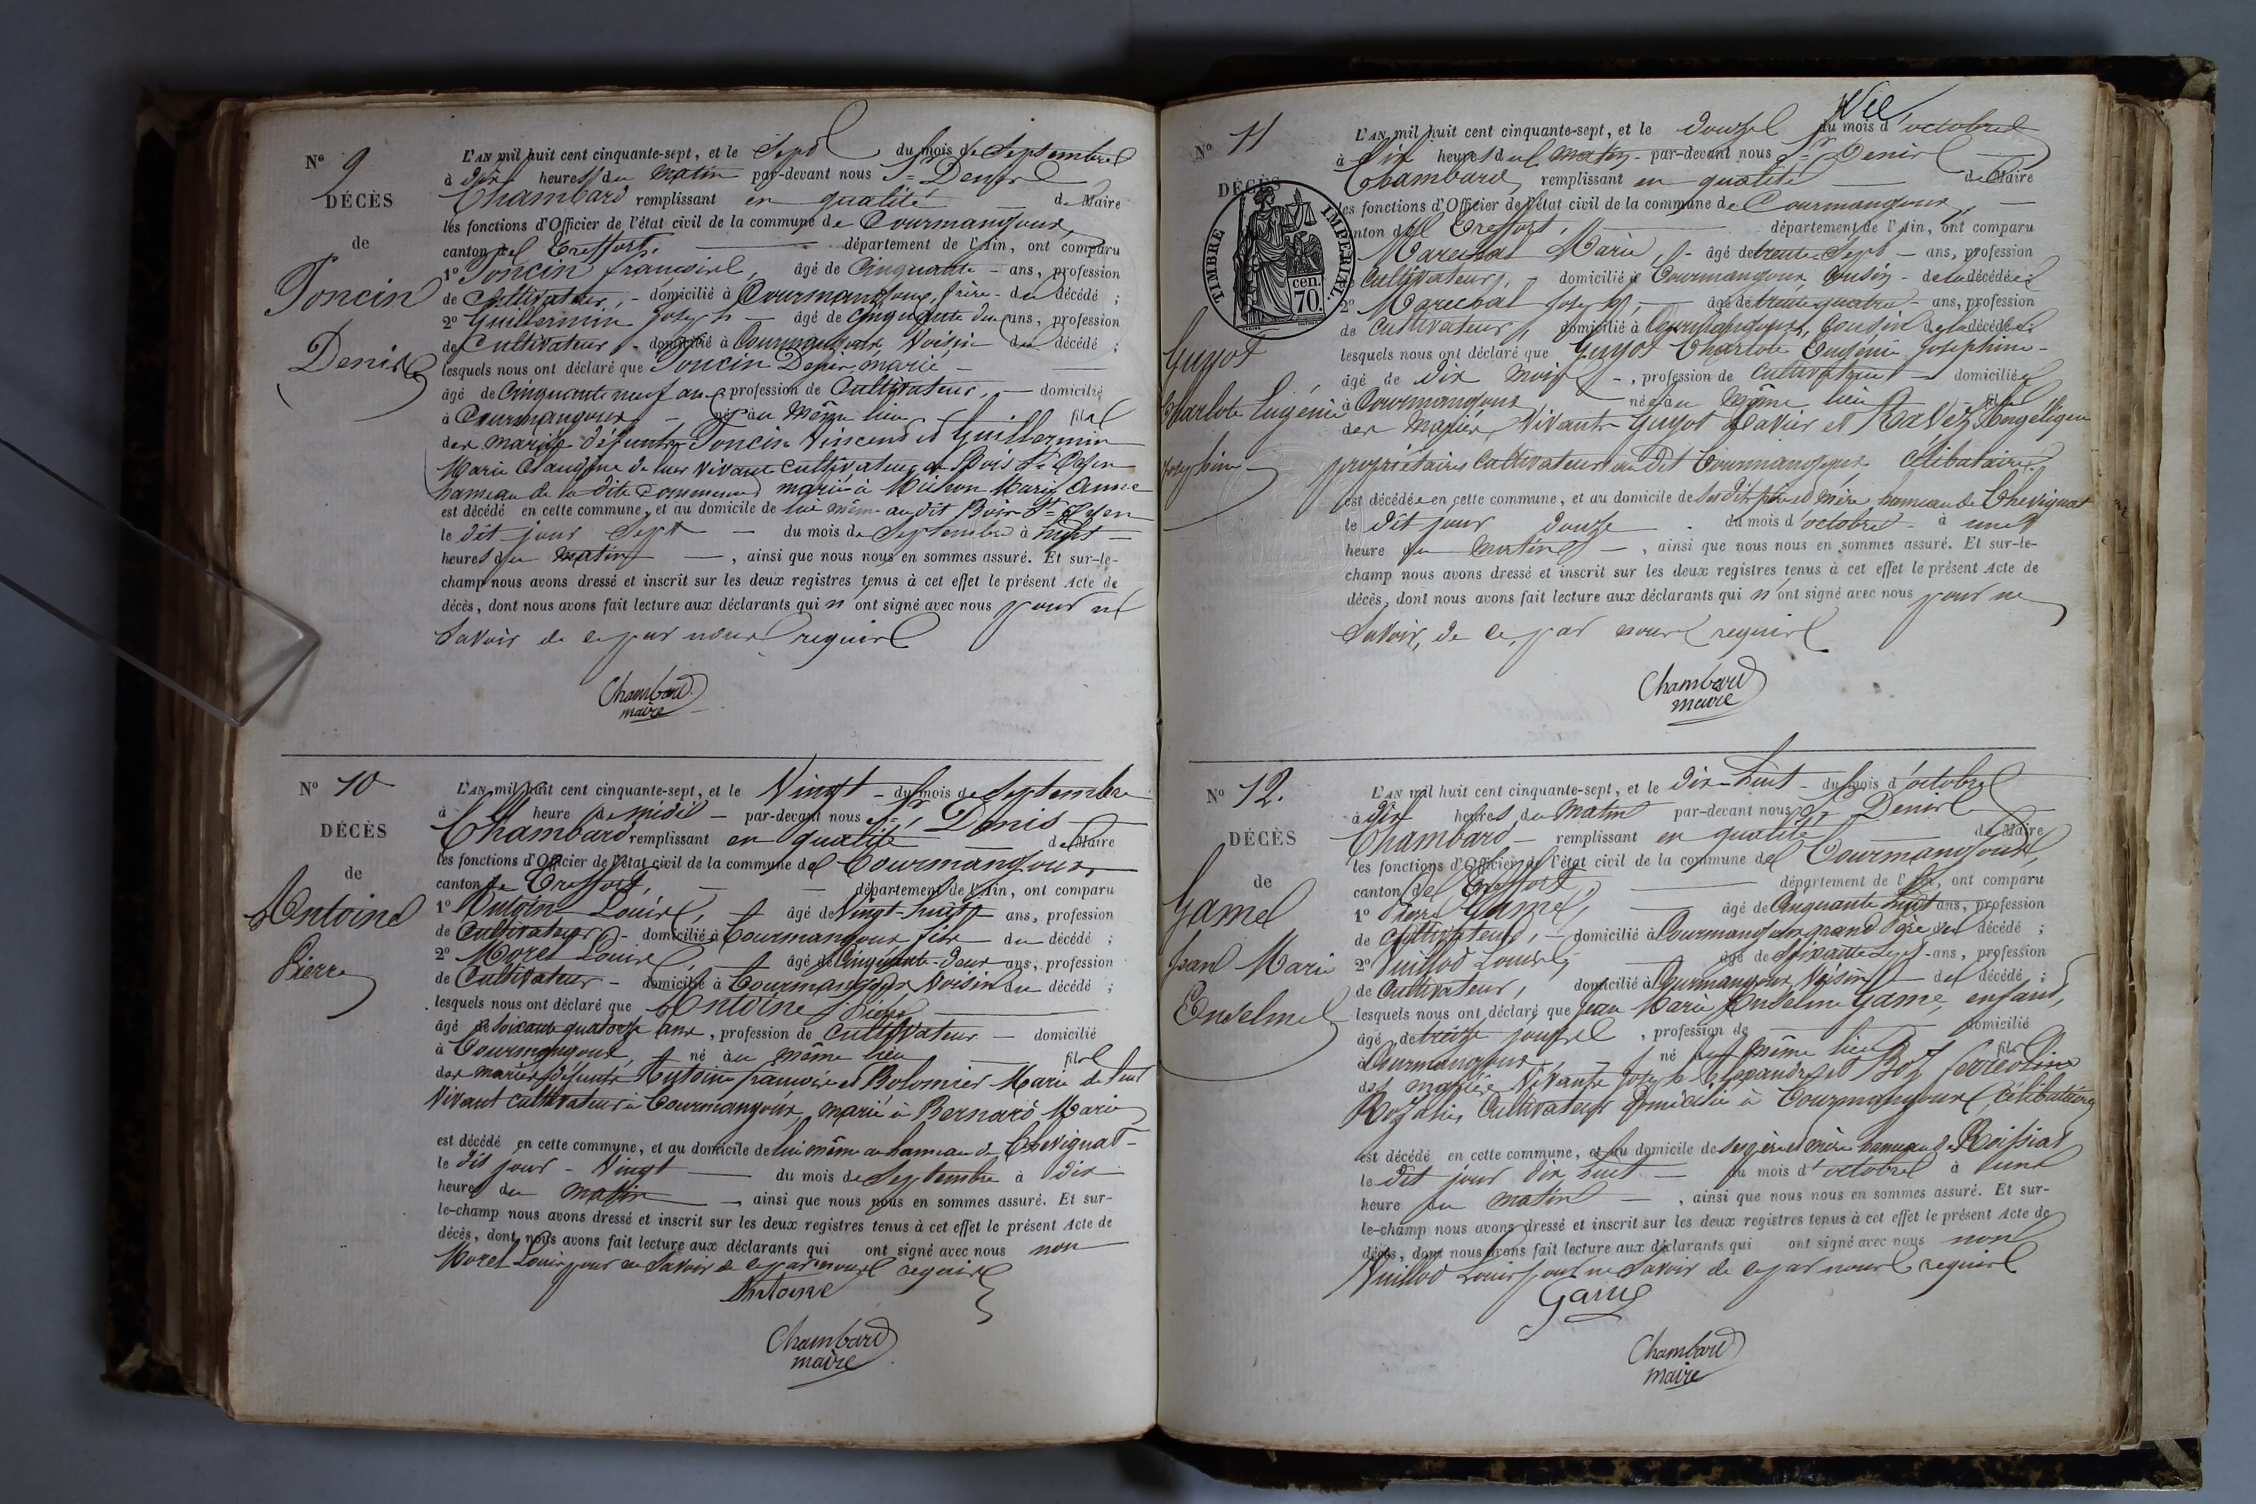 Nº 9
DÉCÈS
de
Poncin
Denis
L'AN mil huit cent cinquante-sept, et le Sept du mois de Septembre
à dix heures du matin par-devant nous Sr Denis
Chambard remplissant en qualité de Maire
les fonctions d'Officier de l'état civil de la commune de Courmangoux,
canton de Treffort, département de l'Ain, ont comparu
1º Poncin françois, âgé de Cinquante ans, profession
de Cultivateur, domicilié à Courmangoux, frère du décédé ;
2º Guillermin Joseph âgé de cinquante deux ans, profession
de Cultivateur, domicilié à Courmangoux Voisin du décédé ;
lesquels nous ont déclaré que Poncin Denis, marié
âgé de Cinquante neuf ans, profession de Cultivateur, domicilié
à Courmangoux né au Même lieu fils
des mariés défunts Poncin Vincend et Guillermin
Marie Claudine de leur vivant cultivateur à Bois
hameau de la dite commune marié à Michon Marie Anne
est décédé en cette commune, et au domicile de lui même audit Bois
le dit jour Sept du mois de Septembre à huit
heures du matin, ainsi que nous nous en sommes assuré. Et sur-le-
champ nous avons dressé et inscrit sur les deux registres tenus à cet effet le présent Acte de
décès, dont nous avons fait lecture aux déclarants qui n'ont signé avec nous pour ne
Savoir de ce par nous requis
Chambard
maire
Nº 10
DÉCÈS
de
Antoine
Pierre
L'AN mil huit cent cinquante-sept, et le Vingt du mois de Septembre
à heure de midi par-devant nous Sr Denis
Chambard remplissant en qualité de Maire
les fonctions d'Officier de l'état civil de la commune de Courmangoux,
canton de Treffort, département de l'Ain, ont comparu
1º Antoine Louis, âgé de Vingt-huit ans, profession
de Cultivateur domicilié à Courmangoux fils du décédé ;
2º Morel Louis, âgé de Cinquante-deux ans, profession
de Cultivateur domicilié à Courmangoux Voisin du décédé ;
lesquels nous ont déclaré que Antoine Pierre
âgé de soixante quatorze ans, profession de cultivateur domicilié
à Courmangoux, né au même lieu fils
des mariés défunts Antoine françois et Bolomier Marie de leur
Vivant cultivateurs à Courmangoux, marié à Bernard Marie
est décédé en cette commune, et au domicile de lui même au hameau de Chevignat
le dit jour Vingt du mois de Septembre à dix
heures du matin, ainsi que nous nous en sommes assuré. Et sur-
le-champ nous avons dressé et inscrit sur les deux registres tenus à cet effet le présent Acte de
décès, dont nous avons fait lecture aux déclarants qui ont signé avec nous non
Morel Louis pour ne Savoir de ce par nous requis
Antoine
Chambard
maire
Vu
Nº 11
DÉCÈS
TIMBRE IMPERIAL
70. cen.
Guyot
Charlote Eugénie
Josephine
L'AN mil huit cent cinquante-sept, et le douze du mois d'octobre
à dix heures du matin par-devant nous Sr Denis
Chambard remplissant en qualité de Maire
les fonctions d'Officier de l'état civil de la commune de Courmangoux,
canton de Treffort, département de l'Ain, ont comparu
Marechal Marie, âgé de trente Sept ans, profession
Cultivateur, domicilié à Courmangoux Cousin de la décédée
2º Marechal Joseph, âgé de trente quatre ans, profession
de Cultivateur, domicilié à Courmangoux, Cousin de la décédée
lesquels nous ont déclaré que Guyot Charlote Eugénie Josephine
âgé de dix Mois, profession de Cultivateur domiciliée
à Courmangoux née au même lieu fille
des Mariés Vivants Guyot Xavier et Ravez
propriétaires Cultivateurs au dit Courmangoux Célibataire
est décédée en cette commune, et au domicile de ses dits père et mère hameau de Chevignat
le dit jour douze du mois d'octobre à une
heure du matin, ainsi que nous nous en sommes assuré. Et sur-le-
champ nous avons dressé et inscrit sur les deux registres tenus à cet effet le présent Acte de
décès, dont nous avons fait lecture aux déclarants qui n'ont signé avec nous pour ne
Savoir, de ce par nous requis
Chambard
maire
Nº 12.
DÉCÈS
de
Game
Jean Marie
Enselme
L'AN mil huit cent cinquante-sept, et le dix-huit du mois d'octobre
à dix heures du Matin par-devant nous Sr Denis
Chambard remplissant en qualité de Maire
les fonctions d'Officier de l'état civil de la commune de Courmangoux,
canton de Treffort, département de l'Ain, ont comparu
1º Pierre Game, âgé de Cinquante huit ans, profession
de Cultivateur, domicilié à Courmangoux grand Père du décédé ;
2º Vuillod Louis, âgé de Soixante Sept ans, profession
de Cultivateur, domicilié à Courmangoux Voisin du décédé ;
lesquels nous ont déclaré que Jean Marie Enselme Game, enfant,
âgé de treize jours, profession de domicilié
à Courmangoux né au même lieu fils
des mariés Vivants Joseph Alexandre et Boz ferréoline
Rosalie, Cultivateurs domiciliés à Courmangoux, Célibataire
est décédé en cette commune, et au domicile de ses père et mère hameau de Roissiat
le dit jour dix huit du mois d'octobre à une
heure du matin, ainsi que nous nous en sommes assuré. Et sur-
le-champ nous avons dressé et inscrit sur les deux registres tenus à cet effet le présent Acte de
décès, dont nous avons fait lecture aux déclarants qui ont signé avec nous non
Vuillod Louis pour ne Savoir de ce par nous requis
Game
Chambard
maire